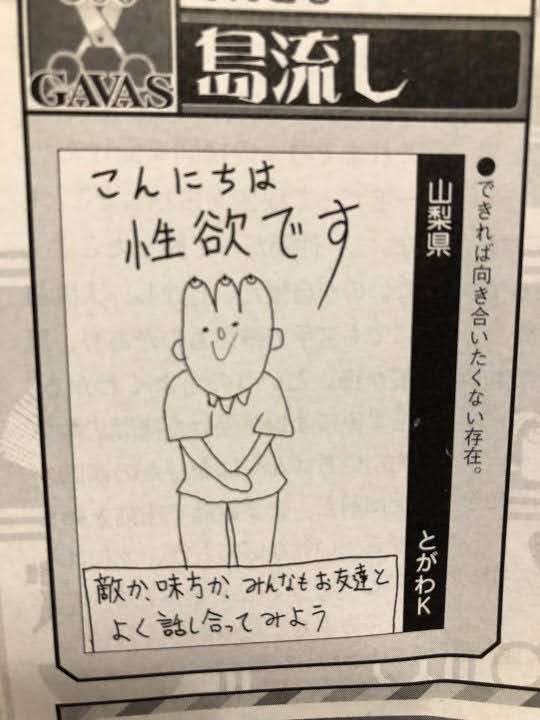 GAVAS
島流し
●できれば向き合いたくない存在。
山梨県 とがわK
こんにちは
性欲です
敵か、味方か、みんなもお友達と
よく話し合ってみよう